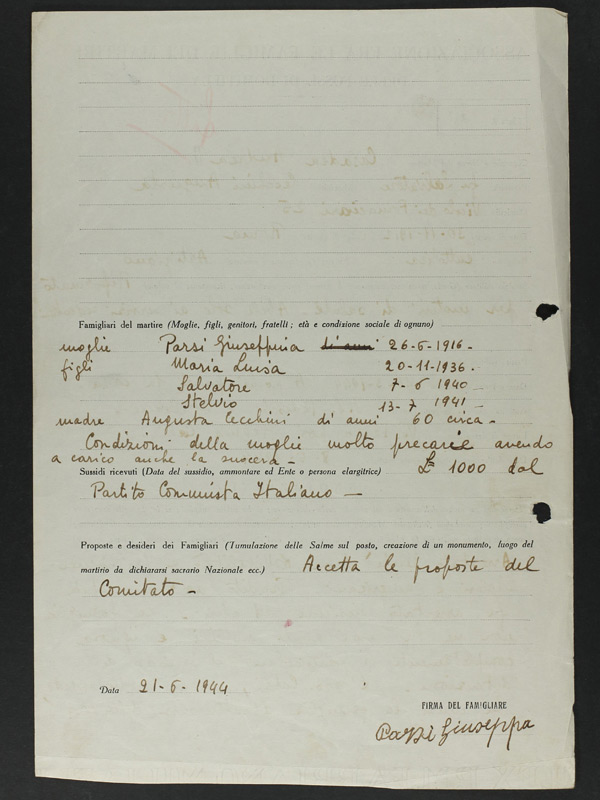 Famigliari del martire (Moglie, figli, genitori, fratelli ; età e condizione sociale di ognuno)
moglie Parsi Giuseppina di anni 26-6-1916-
figli Maria Luisa 20-11-1936-
Salvatore 7-6 1940
Stelvio 13-7 1941-
madre Augusta Cecchini di anni 60 circa-
Condizioni della moglie molto precarie avendo
a carico anche la suocera-
Sussidi ricevuti (Data del sussidio, ammontare ed Ente o persona elargitrice) L 1000 dal
Partito Comunista Italiano-
Proposte e desideri dei Famigliari (Tumulazione delle Salme sul posto, creazione di un monumento, luogo del
martirio da dichiararsi sacrario Nazionale ecc.) Accetta le proposte del
Comitato-
Data 21-6-1944
FIRMA DEL FAMIGLIARE
Giuseppa